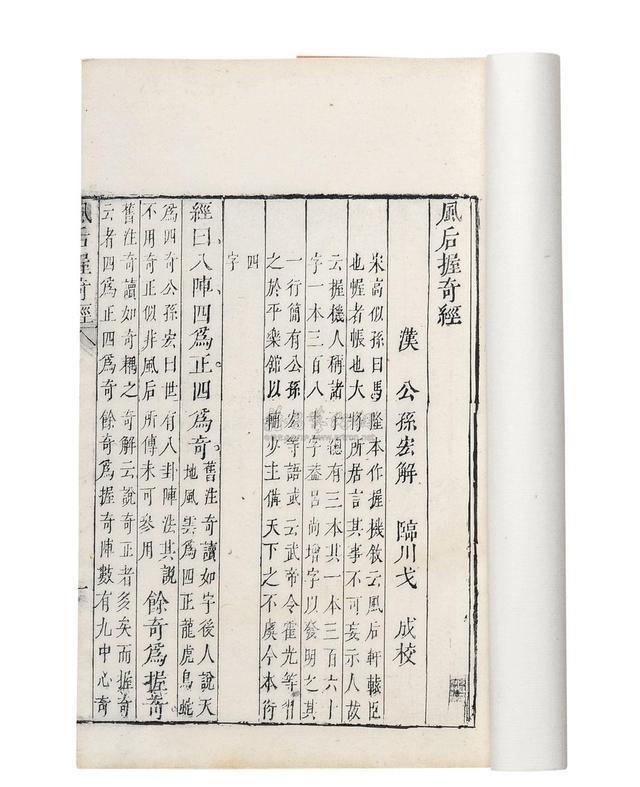 風后握奇經
漢 公孫宏解 臨川戈 成校
宋高似孫曰馬隆本作握機敘云風后軒轅臣
也幄者帳也大將所居言其事不可妄示人故
云握機人稱諸子總有三本其一本三百六十
字一本三百八十字葢呂尚增字以發明之其
一行簡有公孫宏等語或云武帝令霍光等習
之於平樂館以輔少主備天下之不虞今本衍
四
字
經曰八陣四爲正四爲奇舊注奇讀如字後人說天
地風雲爲四正龍虎鳥蛇
爲四奇公孫宏曰世有八卦陣法其說
不用奇正似非風后所傳未可參用餘奇爲握奇
舊注奇讀如奇耦之奇解云說奇正者多矣而握奇
云者四爲正四爲奇餘奇爲握奇陣數有九中心奇
風后握奇經
一